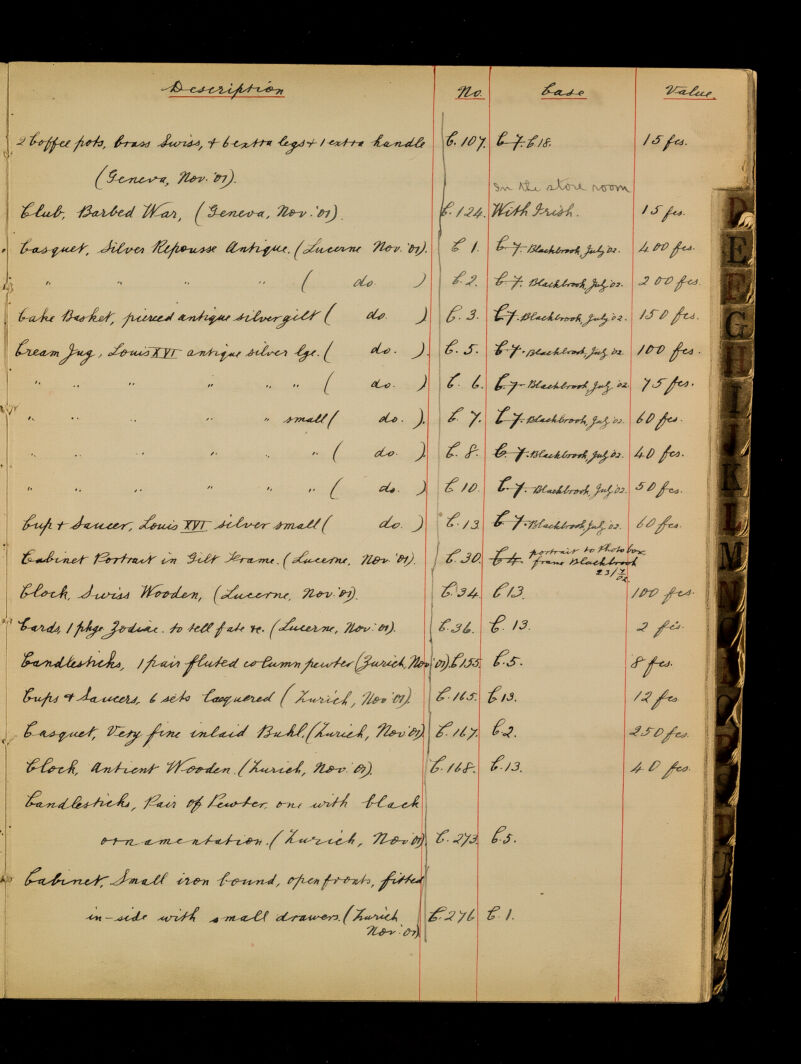 Description No. Case Value.
2 Coffee pots, Brass Swiss, + 6 extra legs + 1 extra handle C.107. C.7. C18. 15 fcs.
(Geneva, Nov. '01).
In the store room
Club, Barbed War, (Geneva, Nov. '01). C.124. With Irish. 15 fcs.
Casquet, Silver Repousse Antique. (Lucerne Nov. '01). C 1. C.7. Blackbrook, July '02. 400 fcs.
" " " " ( do ) C.2. C.7. Blackbrook, July '02. 200 fcs.
Cake Basket, pierced antique silver gilt ( do. ) C.3. C.7. Blackbrook, July '02. 150 fcs.
Cream Jug, Louis XVI antique silver lge. ( do. ). C.5. C.7. Blackbrook, July '02. 100 fcs.
" " " " " " ( do. ) C. 6. C.7. Blackbrook, July '02. 75 fcs.
" " " " " small ( do. ). C. 7. C.7. Blackbrook, July '02. 60 fcs.
" " " " " " ( do. ) C. 8. C.7. Blackbrook, July '02. 40 fcs.
" " " " " " ( do. ) C 10. C.7. Blackbrook, July '02. 50 fcs.
Cup + Saucer, Louis XVI silver small ( do. ) C.13. C.7. Blackbrook, July '02. 60 fcs.
Cabinet Portrait in Gilt Frame. (Lucerne, Nov. '01). C.30. C 4. portrait to Photo box
frame Blackbrook
23/7/02
Clock, Swiss Wooden, (Lucerne, Nov. '01). C.34. C 13. 100 fcs.
Cards, 1 pkge Zodiac. to tell fate &c. (Lucerne, Nov: 01). C.36. C. 13. 2 fcs.
Candlesticks, 1 pair fluted column pewter (Zurich, Nov '01) C.155. C.5. 8 fcs.
Cups + Saucers. 6 sets Lacquered (Zurich, Nov '01). C.165. C 13. 12 fcs
Casquet, Very fine inlaid Buhl. (Zurich, Nov '01) C.167. C.2. 250 fcs.
Clock, Antient Wooden. (Zurich, Nov. '01). C.168. C.13. 40 fcs.
Candlesticks, Pair of Pewter. one with black
ornamentation. (Zurich, Nov '01). C.273. C.5.
Cabinet, Small iron bound, open fronts, fitted
in-side with small drawers. (Zurich C.276 C. 1.
Nov. '01)
D
E
F
G
H
I
J
K
L
M
N
O
P
U